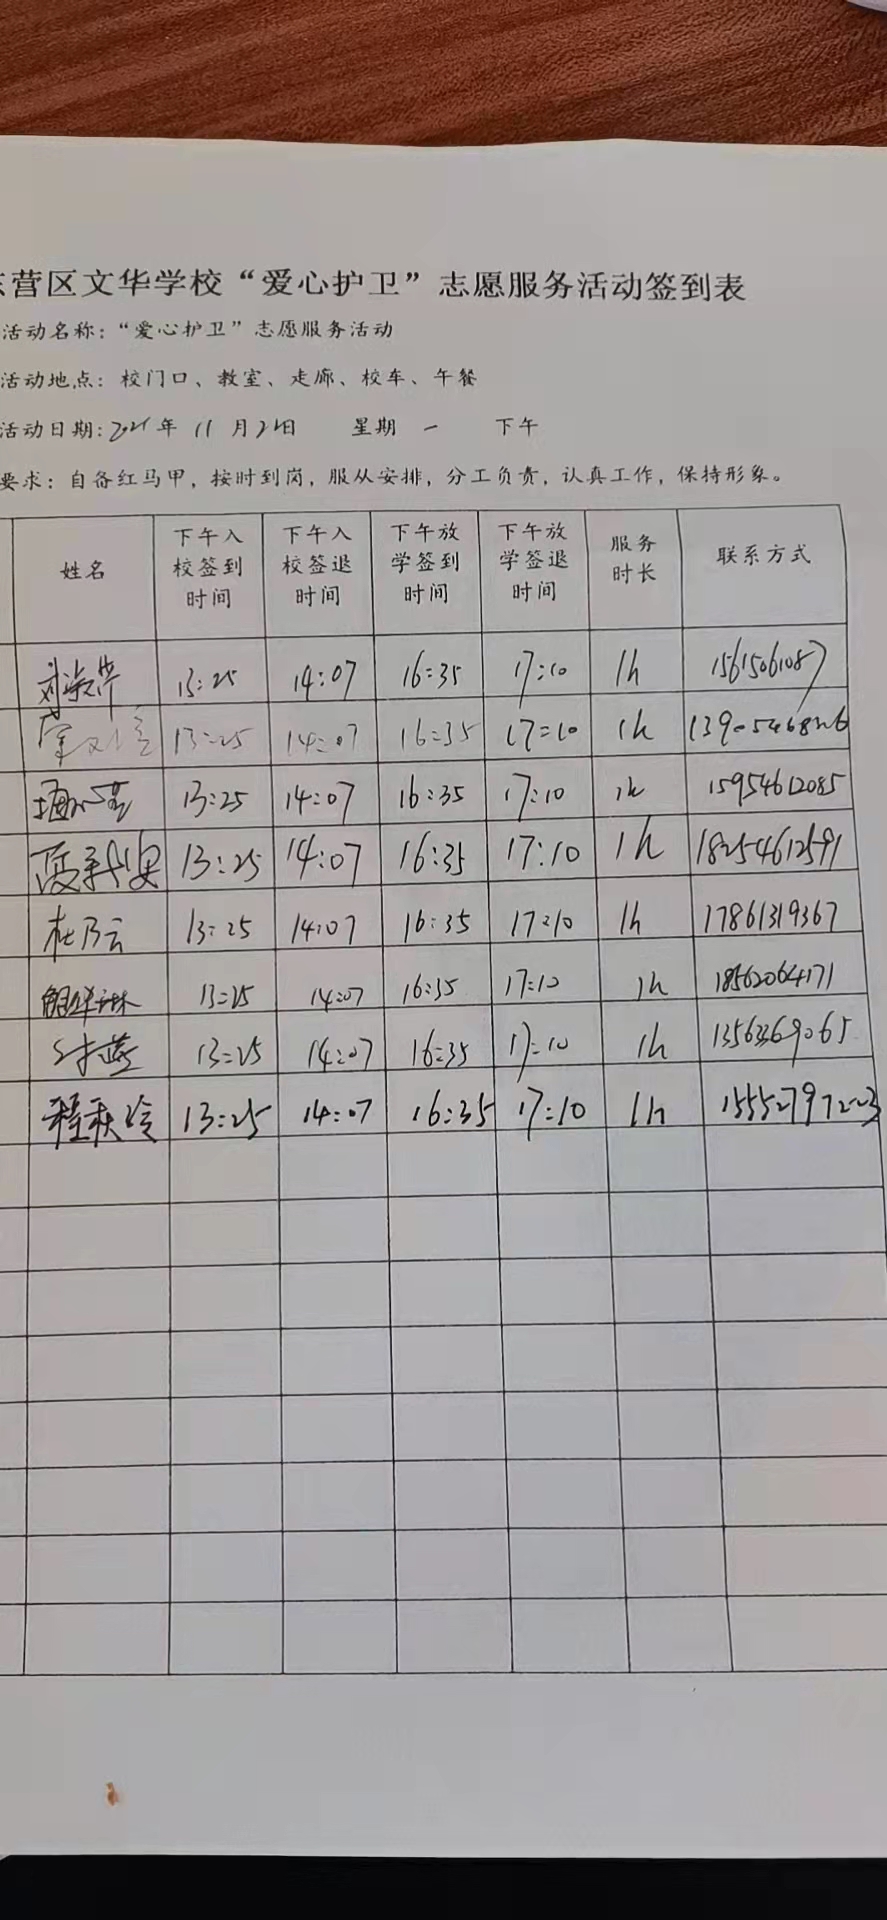 营区文华学校“爱心护卫”志愿服务活动签到表
活动名称：“爱心护卫”志愿服务活动
活动地点：校门口、教室、走廊、校车、午餐
活动日期: 年 11 月 日 星期 一 下午
要求：自备红马甲，按时到岗，服从安排，分工负责，认真工作，保持形象。
姓名 下午入校签到时间 下午入校签退时间 下午放学签到时间 下午放学签退时间 服务时长 联系方式
13:25 14:07 16:35 17:10 1h 15615061087
13:25 14:07 16:35 17:10 1h
13:25 14:07 16:35 17:10 1h 15954612085
13:25 14:07 16:35 17:10 1h 18254612591
杜乃云 13:25 14:07 16:35 17:10 1h 17861319367
13:25 14:07 16:35 17:10 1h 18562064171
13:25 14:07 16:35 17:10 1h 13563369065
程秋玲 13:25 14:07 16:35 17:10 1h 15552797223